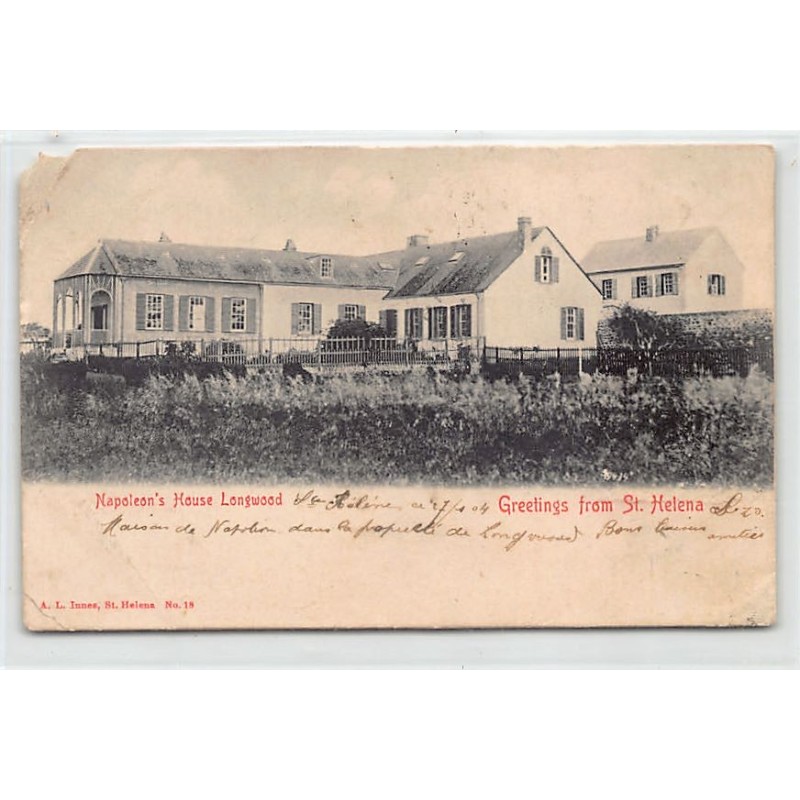 Napoleon's House Longwood Ste Hélène Greetings from St. Helena
Maison de Napoléon dans la propriété de Longwood Bons
amitiés
A. L. Innes, St. Helena No. 18